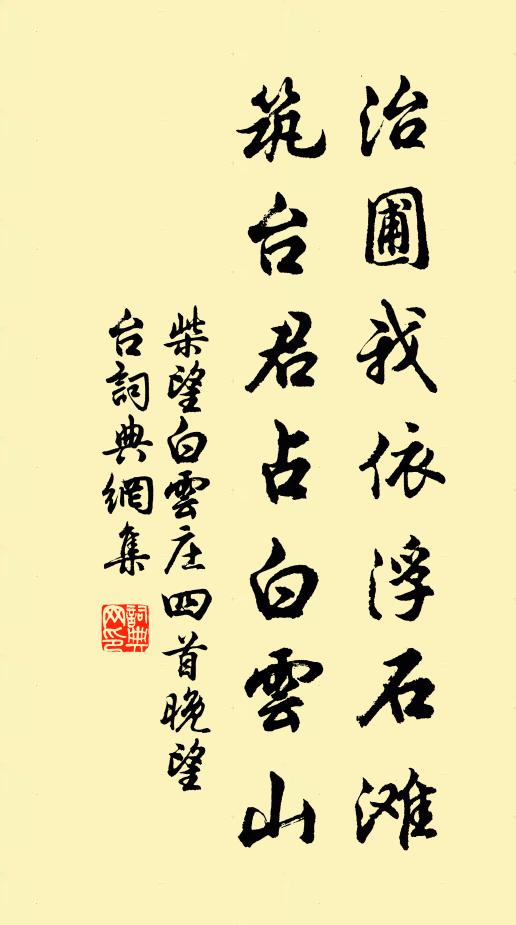 治圃我依浮石滩
筑台君占白雲山
柴望白雲庄四首晚望
台詞典網集
詞典网印